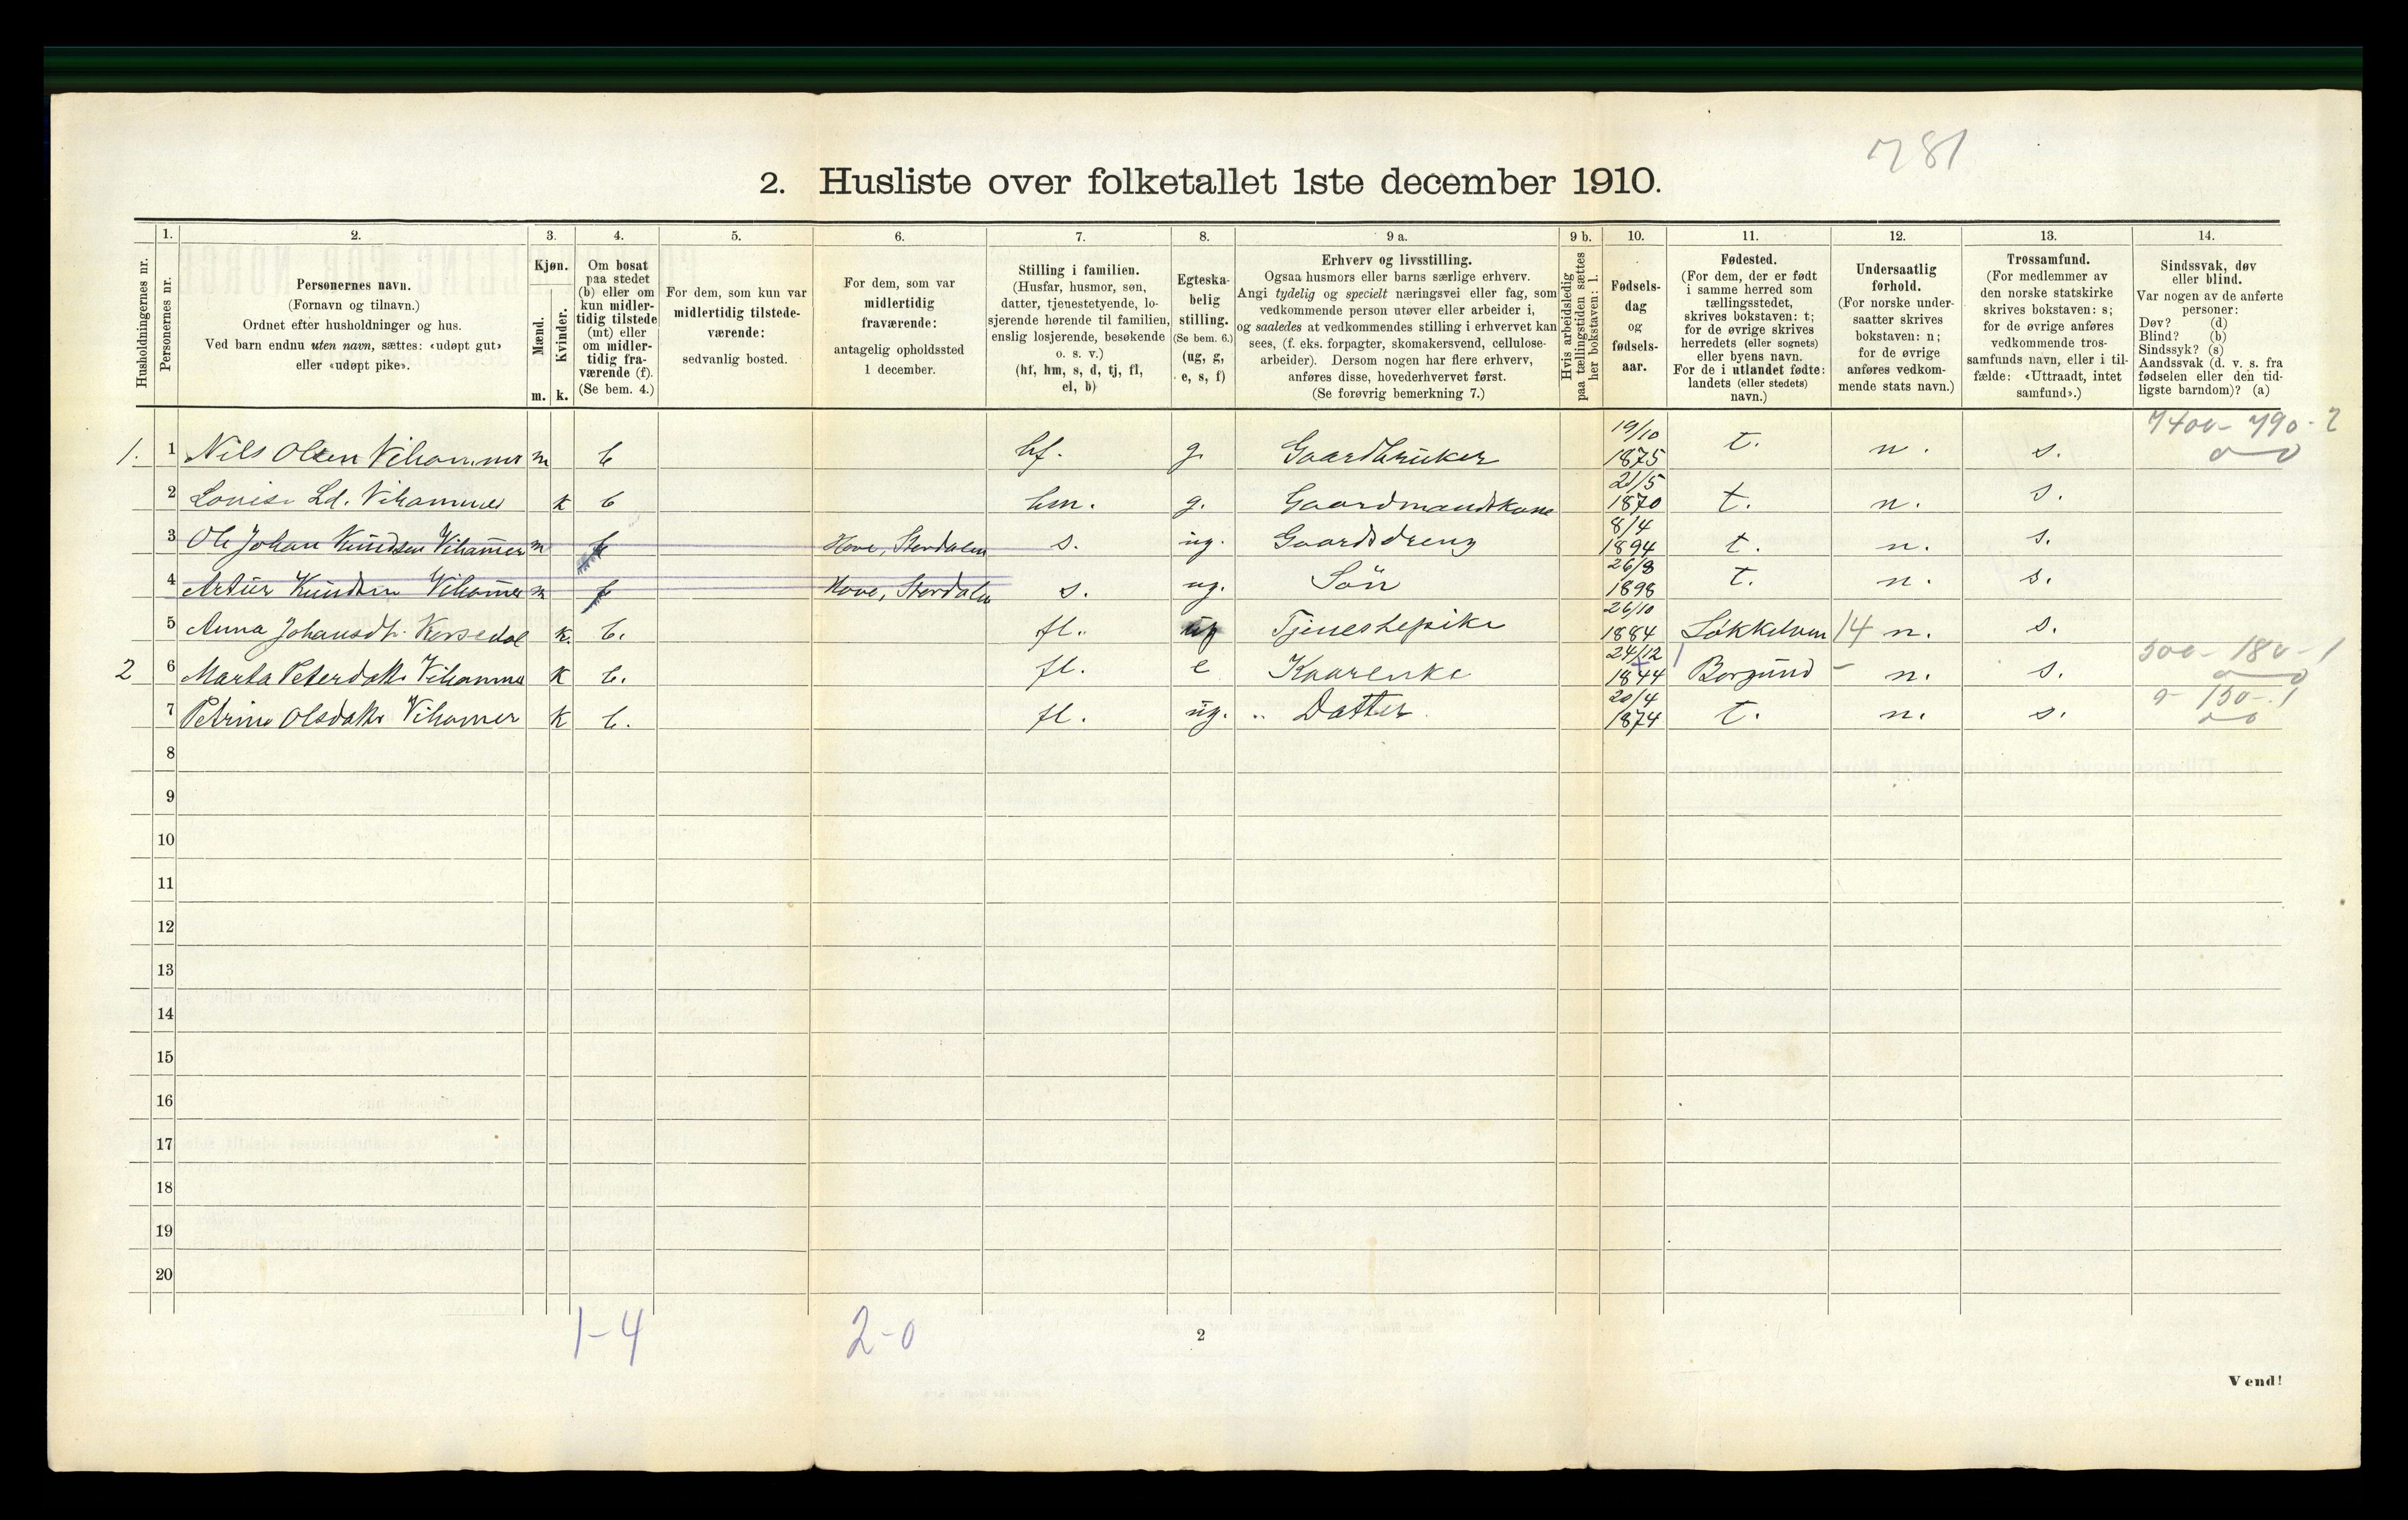 781
2. Husliste over folketallet 1ste december 1910.
Husholdningernes nr.
1. Personernes nr.
2. Personernes navn.
(Fornavn og tilnavn.)
Ordnet efter husholdninger og hus.
Ved barn endnu uten navn, sættes: «udøpt gut»
eller «udøpt pike».
3. Kjøn.
Mænd. m.
Kvinder. k.
4. Om bosat
paa stedet
(b) eller om
kun midler-
tidig tilstede
(mt) eller
om midler-
tidig fra-
værende (f).
(Se bem. 4.)
5. For dem, som kun var
midlertidig tilstede-
værende:
sedvanlig bosted.
6. For dem, som var
midlertidig
fraværende:
antagelig opholdssted
1 december.
7. Stilling i familien.
(Husfar, husmor, søn,
datter, tjenestetyende, lo-
sjerende hørende til familien,
enslig losjerende, besøkende
o. s. v.)
(hf, hm, s, d, tj, fl,
el, b)
8. Egteska-
belig
stilling.
(Se bem. 6.)
(ug, g,
e, s, f)
9 a. Erhverv og livsstilling.
Ogsaa husmors eller barns særlige erhverv.
Angi tydelig og specielt næringsvei eller fag, som
vedkommende person utøver eller arbeider i,
og saaledes at vedkommendes stilling i erhvervet kan
sees, (f. eks. forpagter, skomakersvend, cellulose-
arbeider). Dersom nogen har flere erhverv,
anføres disse, hovederhvervet først.
(Se forøvrig bemerkning 7.)
9 b. Hvis arbeidsledig
paa tællingstiden sættes
her bokstaven: l.
10. Fødsels-
dag
og
fødsels-
aar.
11. Fødested.
(For dem, der er født
i samme herred som
tællingsstedet,
skrives bokstaven: t;
for de øvrige skrives
herredets (eller sognets)
eller byens navn.
For de i utlandet fødte:
landets (eller stedets)
navn.)
12. Undersaatlig
forhold.
(For norske under-
saatter skrives
bokstaven: n;
for de øvrige
anføres vedkom-
mende stats navn.)
13. Trossamfund.
(For medlemmer av
den norske statskirke
skrives bokstaven: s;
for de øvrige anføres
vedkommende tros-
samfunds navn, eller i til-
fælde: «Uttraadt, intet
samfund».)
14. Sindssvak, døv
eller blind.
Var nogen av de anførte
personer:
Døv? (d)
Blind? (b)
Sindssyk? (s)
Aandssvak (d. v. s. fra
fødselen eller den tid-
ligste barndom)? (a)
1. 1 Nils Olsen Vihammer m b hf. g. Gaardbruker 19/10 1875 t. n. s. 7400 - 790 - 2
2 Louise Ld. Vihammer k b hm. g. Gaardmandskone 21/5 1870 t. n. s.
3 Ole Johan Knudsen Vihammer m f Hove, Stordalen s. ug. Gaardsdreng 8/4 1894 t. n. s.
4 Artur Knudsen Vihammer m f Hove, Stordalen s. ug. Sön 26/8 1898 t. n. s.
5 Anna Johansdt. Korsedal k. b. fl. ug Tjenestepike 26/10 1884 Søkkelven 14 n. s.
2 6 Marta Petersdatr Vihammer k b. fl. e Kaarenke 24/12 1844 Borgund - n. s. 500 - 180 - 1
7 Petrine Olsdatr Vihammer k b. fl. ug. " Datter 20/4 1874 t. n. s. 0 - 150 - 1
8
9
10
11
12
13
14
15
16
17
18
19
20
1-4 2-0
2
Vend!